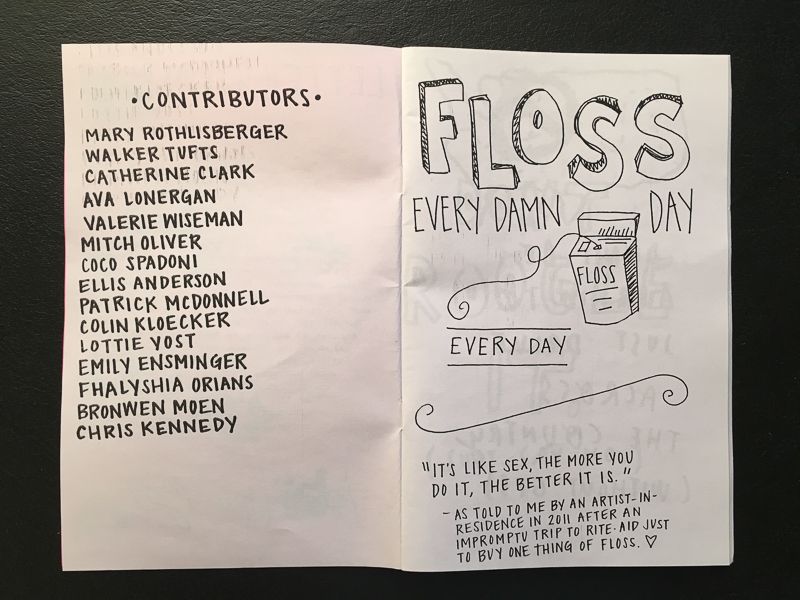 •CONTRIBUTORS•
MARY ROTHLISBERGER
WALKER TUFTS
CATHERINE CLARK
AVA LONERGAN
VALERIE WISEMAN
MITCH OLIVER
COCO SPADONI
ELLIS ANDERSON
PATRICK MCDONNELL
COLIN KLOECKER
LOTTIE YOST
EMILY ENSMINGER
FHALYSHIA ORIANS
BRONWEN MOEN
CHRIS KENNEDY
FLOSS
EVERY DAMN DAY
FLOSS
EVERY DAY
"IT'S LIKE SEX, THE MORE YOU
DO IT, THE BETTER IT IS."
- AS TOLD TO ME BY AN ARTIST-IN-
RESIDENCE IN 2011 AFTER AN
IMPROMPTU TRIP TO RITE-AID JUST
TO BUY ONE THING OF FLOSS. ♡